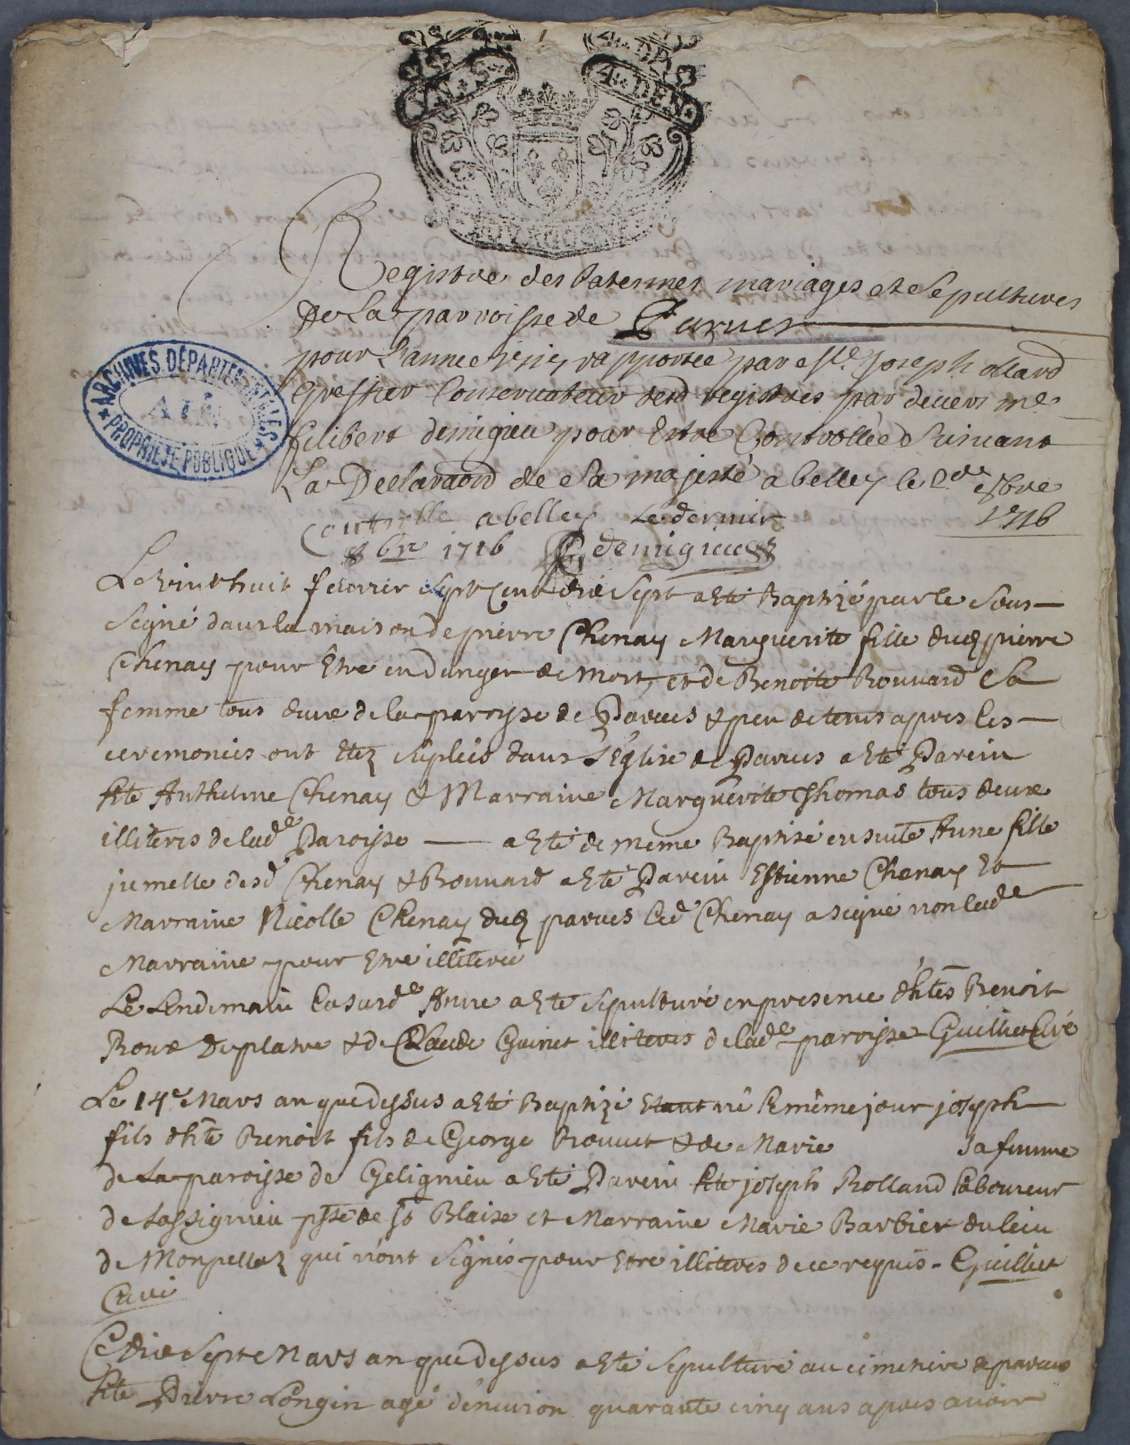 UN S 4 DEN
BOVRGOGNE
Registre des Batesmes mariages et Sepultures
De La parroisse de Parves
pour L'annee 1717 rapportée par Me Joseph
Greffier Conservateur desd registres par devers me
filibert demigieu pour Estre Controllée Suivant
La Declaraon de Sa majesté a belley le
1716
Controllé a belley Le dernier
8bre 1716 demigieu
ARCHIVES DÉPARTEMENTALES
AIN
PROPRIÉTÉ PUBLIQUE
Le vint huit fevrier Sept Cent dix Sept a Eté Baptizé par le Sous
Signé dans la maison de pierre Chenay Marguerite fille dud pierre
Chenay pour Etre en danger de Mort, et de Benoite Rouvard Sa
femme tous deux de la paroysse de Parves & peu de tems apres les
ceremonies ont Etez supleés dans L'Eglise de Parves a Eté Parein
hte Anthelme Chenay & Marraine Marguerite Thomas tous deux
illiterés de lade Paroisse — a Eté de meme Baptisé en suite Anne fille
jumelle desd Chenay & Rouvard a Eté Parein Estienne Chenay Et
Marraine Nicolle Chenay dud parves Led Chenay a signé non lade
Marraine pour Etre illiterée
Le Lendemain Lasusde Anne a Eté Sepulturé en presence d'htes Benoit
Roux Deplatre & de Claude Guinet illiterés de lade paroisse Guilliet Curé
Le 14e Mars an que dessus a Eté Baptizé Etant né le même jour joseph
fils d'hte Benoit fils de George Brouvet & de Marie sa femme
de La paroisse de Gelignieu a Eté Parein hte joseph Rolland laboureur
de Lassignieu psse de St Blaise et Marraine Marie Barbier du lieu
de Monpellaz qui n'ont Signés pour Etre illiterés de ce requis - Guilliet
Curé
Ce dix Sept Mars an que dessus a Eté Sepulturé au cimetiere de parves
hte Pierre Longin agé d'environ quarante cinq ans apres avoir